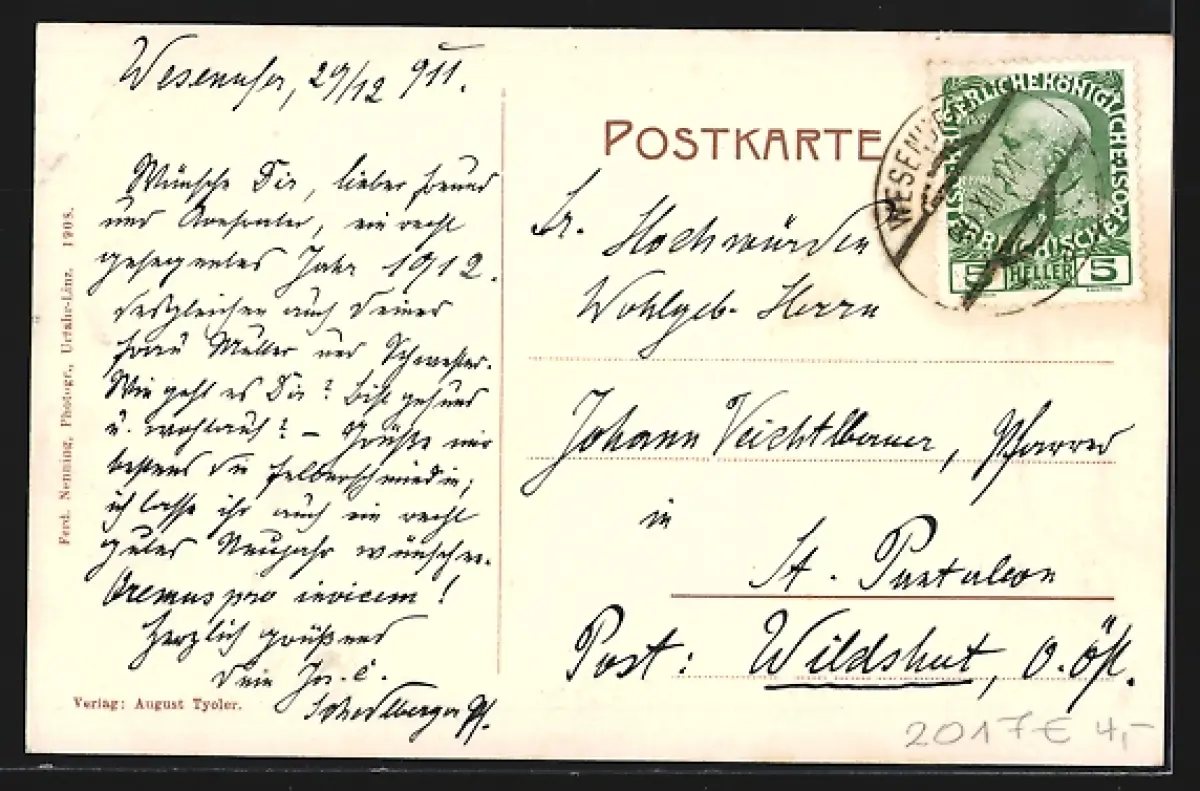 Wesenufer, 29/12 911.
Wünsche Dir, lieber Freund
und Consenior, ein recht
gesegnetes Jahr 1912.
desgleichen auch Deiner
Frau Mutter und Schwester.
Wie geht es Dir? bist gesund
u. wohlauf? – Grüße mir
bestens die Felberschmiedin;
ich lasse ihr auch ein recht
gutes Neujahr wünschen.
Oremus pro invicem!
Herzlich grüßend
Dein Jos. C.
Pf.
Verlag: August Tyoler.
Ferd. Nenning, Photogr., Urfahr-Linz. 1908.
POSTKARTE
Sr. Hochwürden
Wohlgeb. Herrn
Johann Veichtlbauer, Pfarrer
in
St. Pantaleon
Post: Wildshut, O. Öst.
KAISERLICHE KÖNIGLICHE ÖSTERREICHISCHE POST
5 HELLER 5
WESENUFER
XII 11
2017 € 4,-